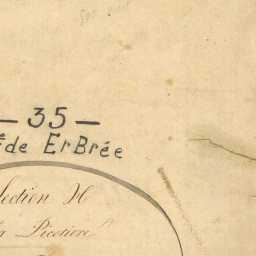 — 35 —
de ErBrée
Section H
la Picotiere